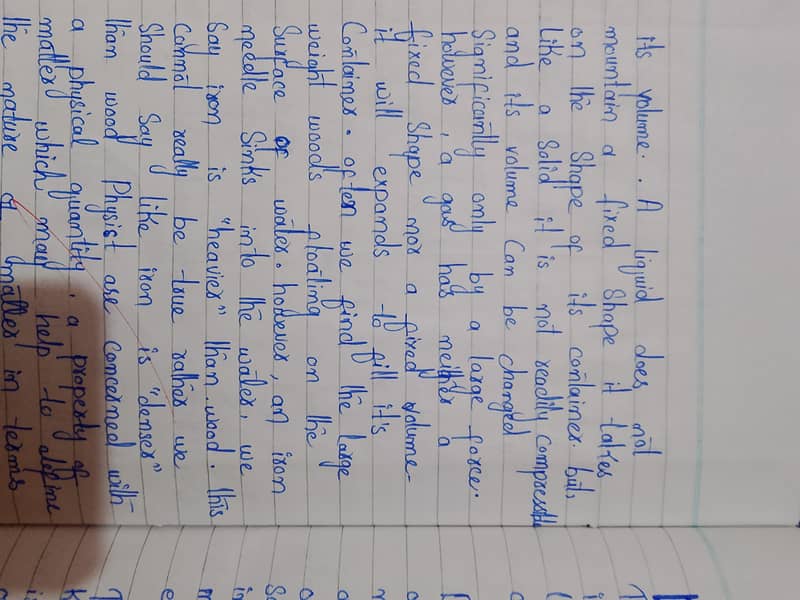 its volume. . A liquid does not
mountain a fixed shape it takes
on the shape of its container. but
Like a solid it is not readily compressible
and its volume can be changed
Significantly only by a large force.
however, a gas has neither a
fixed shape nor a fixed volume-
it will expands to fill it's
Container. often we find the large
weight woods floating on the
Surface of water. however, an iron
needle Sinks into the water, we
Say iron is "heavier" than wood. this
cannot really be true rather we
Should Say like iron is "denser"
than wood Physist are concerned with
a physical quantity. a property of
matter which may help to define
the nature of matter in terms